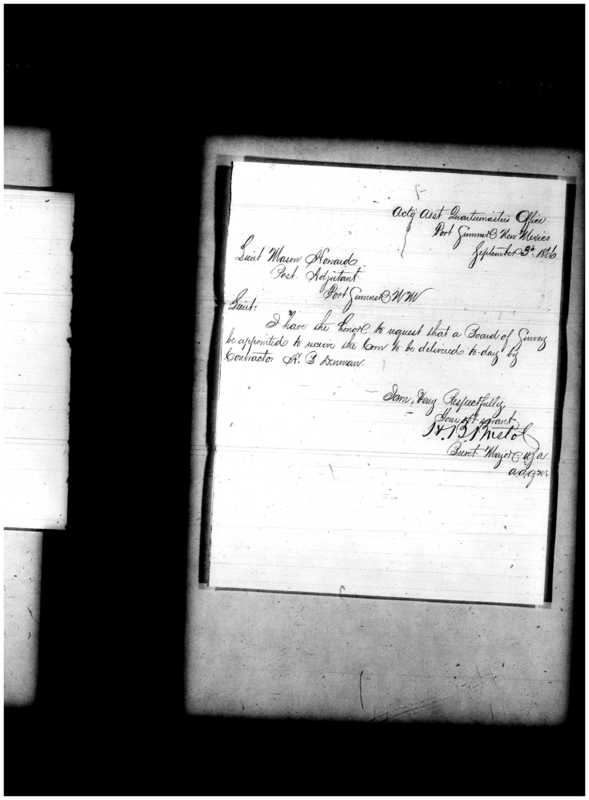 Actg Asst Quartermasters Office
Fort Sumner New Mexico
September 3d 1866
Lieut Mason Howard
Post Adjutant
Fort Sumner N M
Lieut:
I have the honor to request that a Board of Survey
be appointed to receive the Corn to be delivered to-day by
Contractor
I am, Very Respectfully
Your obt servant
H. B. Bristol
Brevt Major U S A